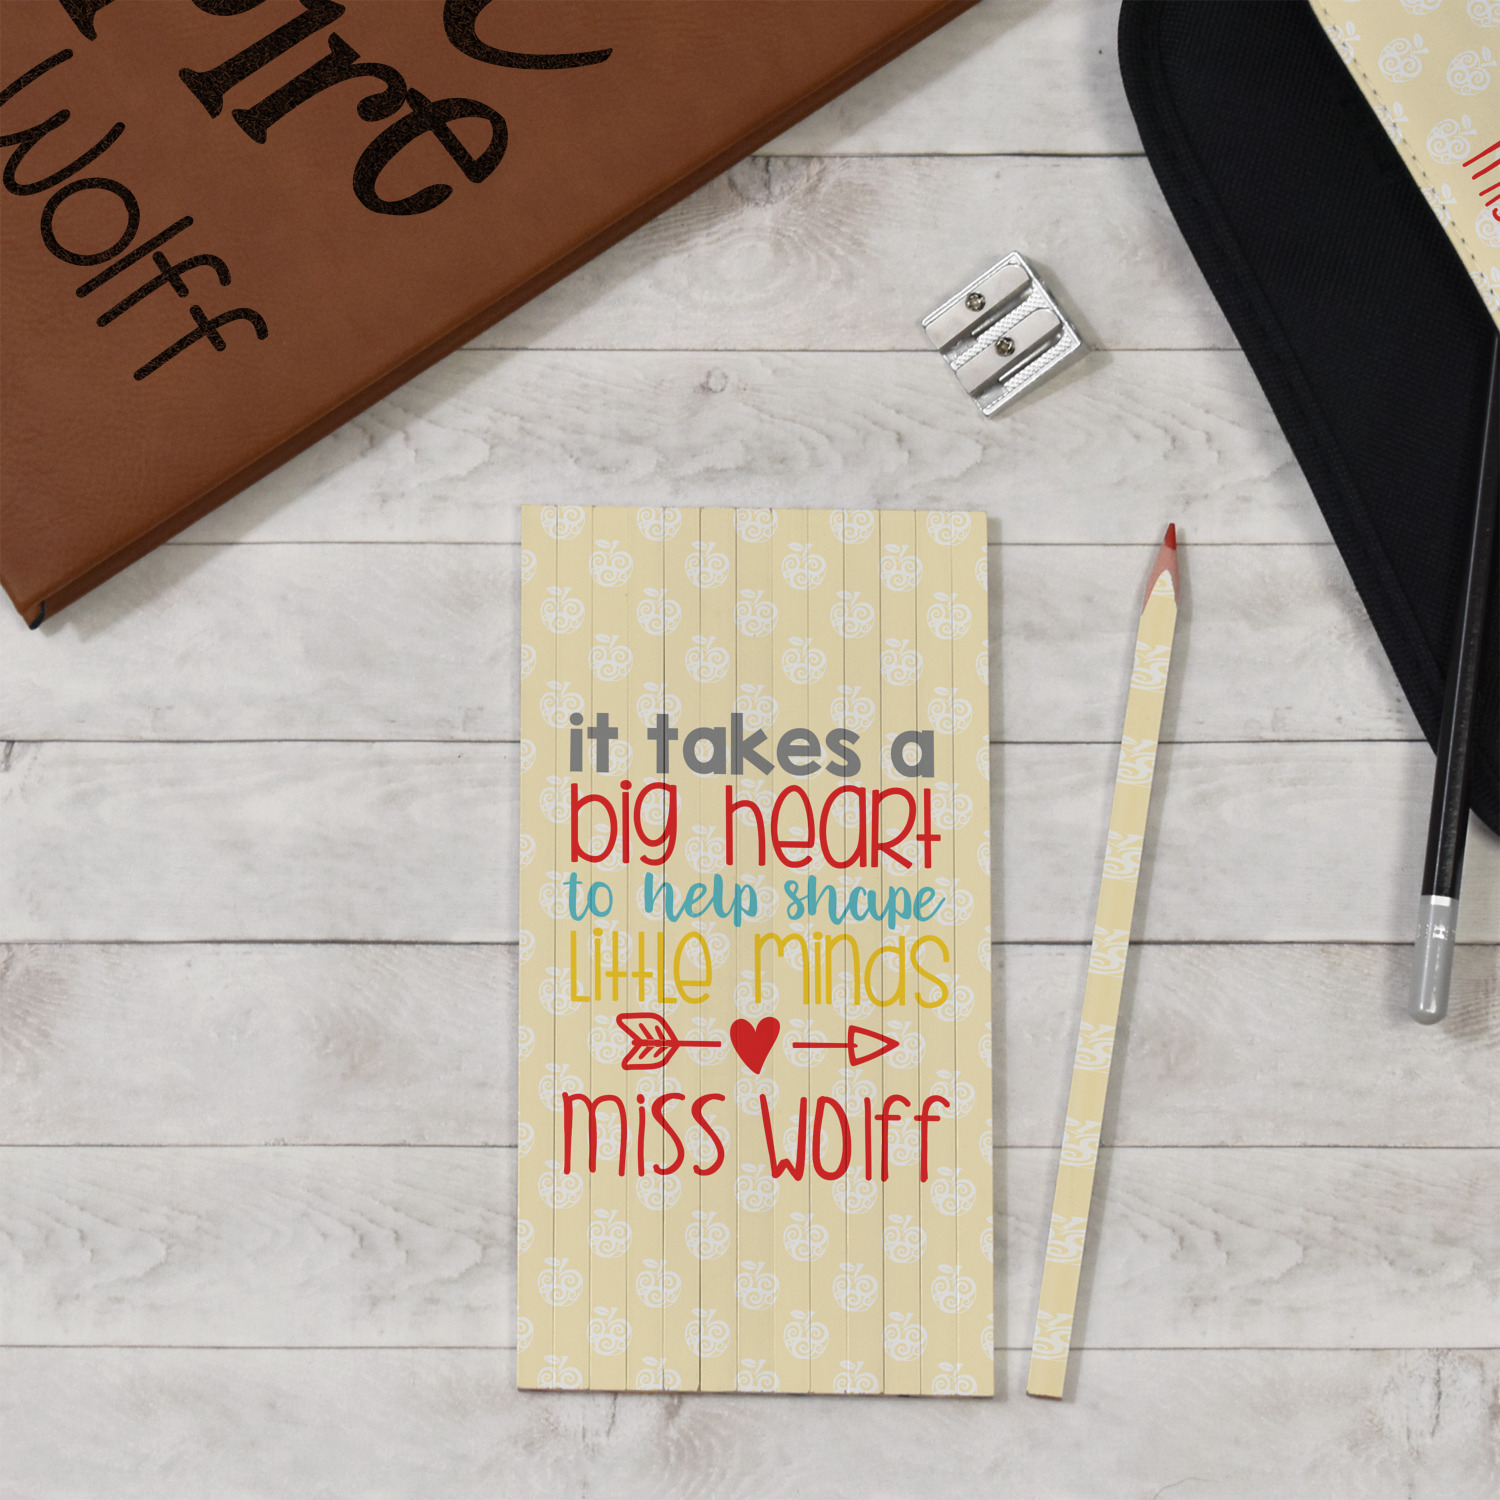 wolff
it takes a
big heart
to help shape
little minds
miss wolff